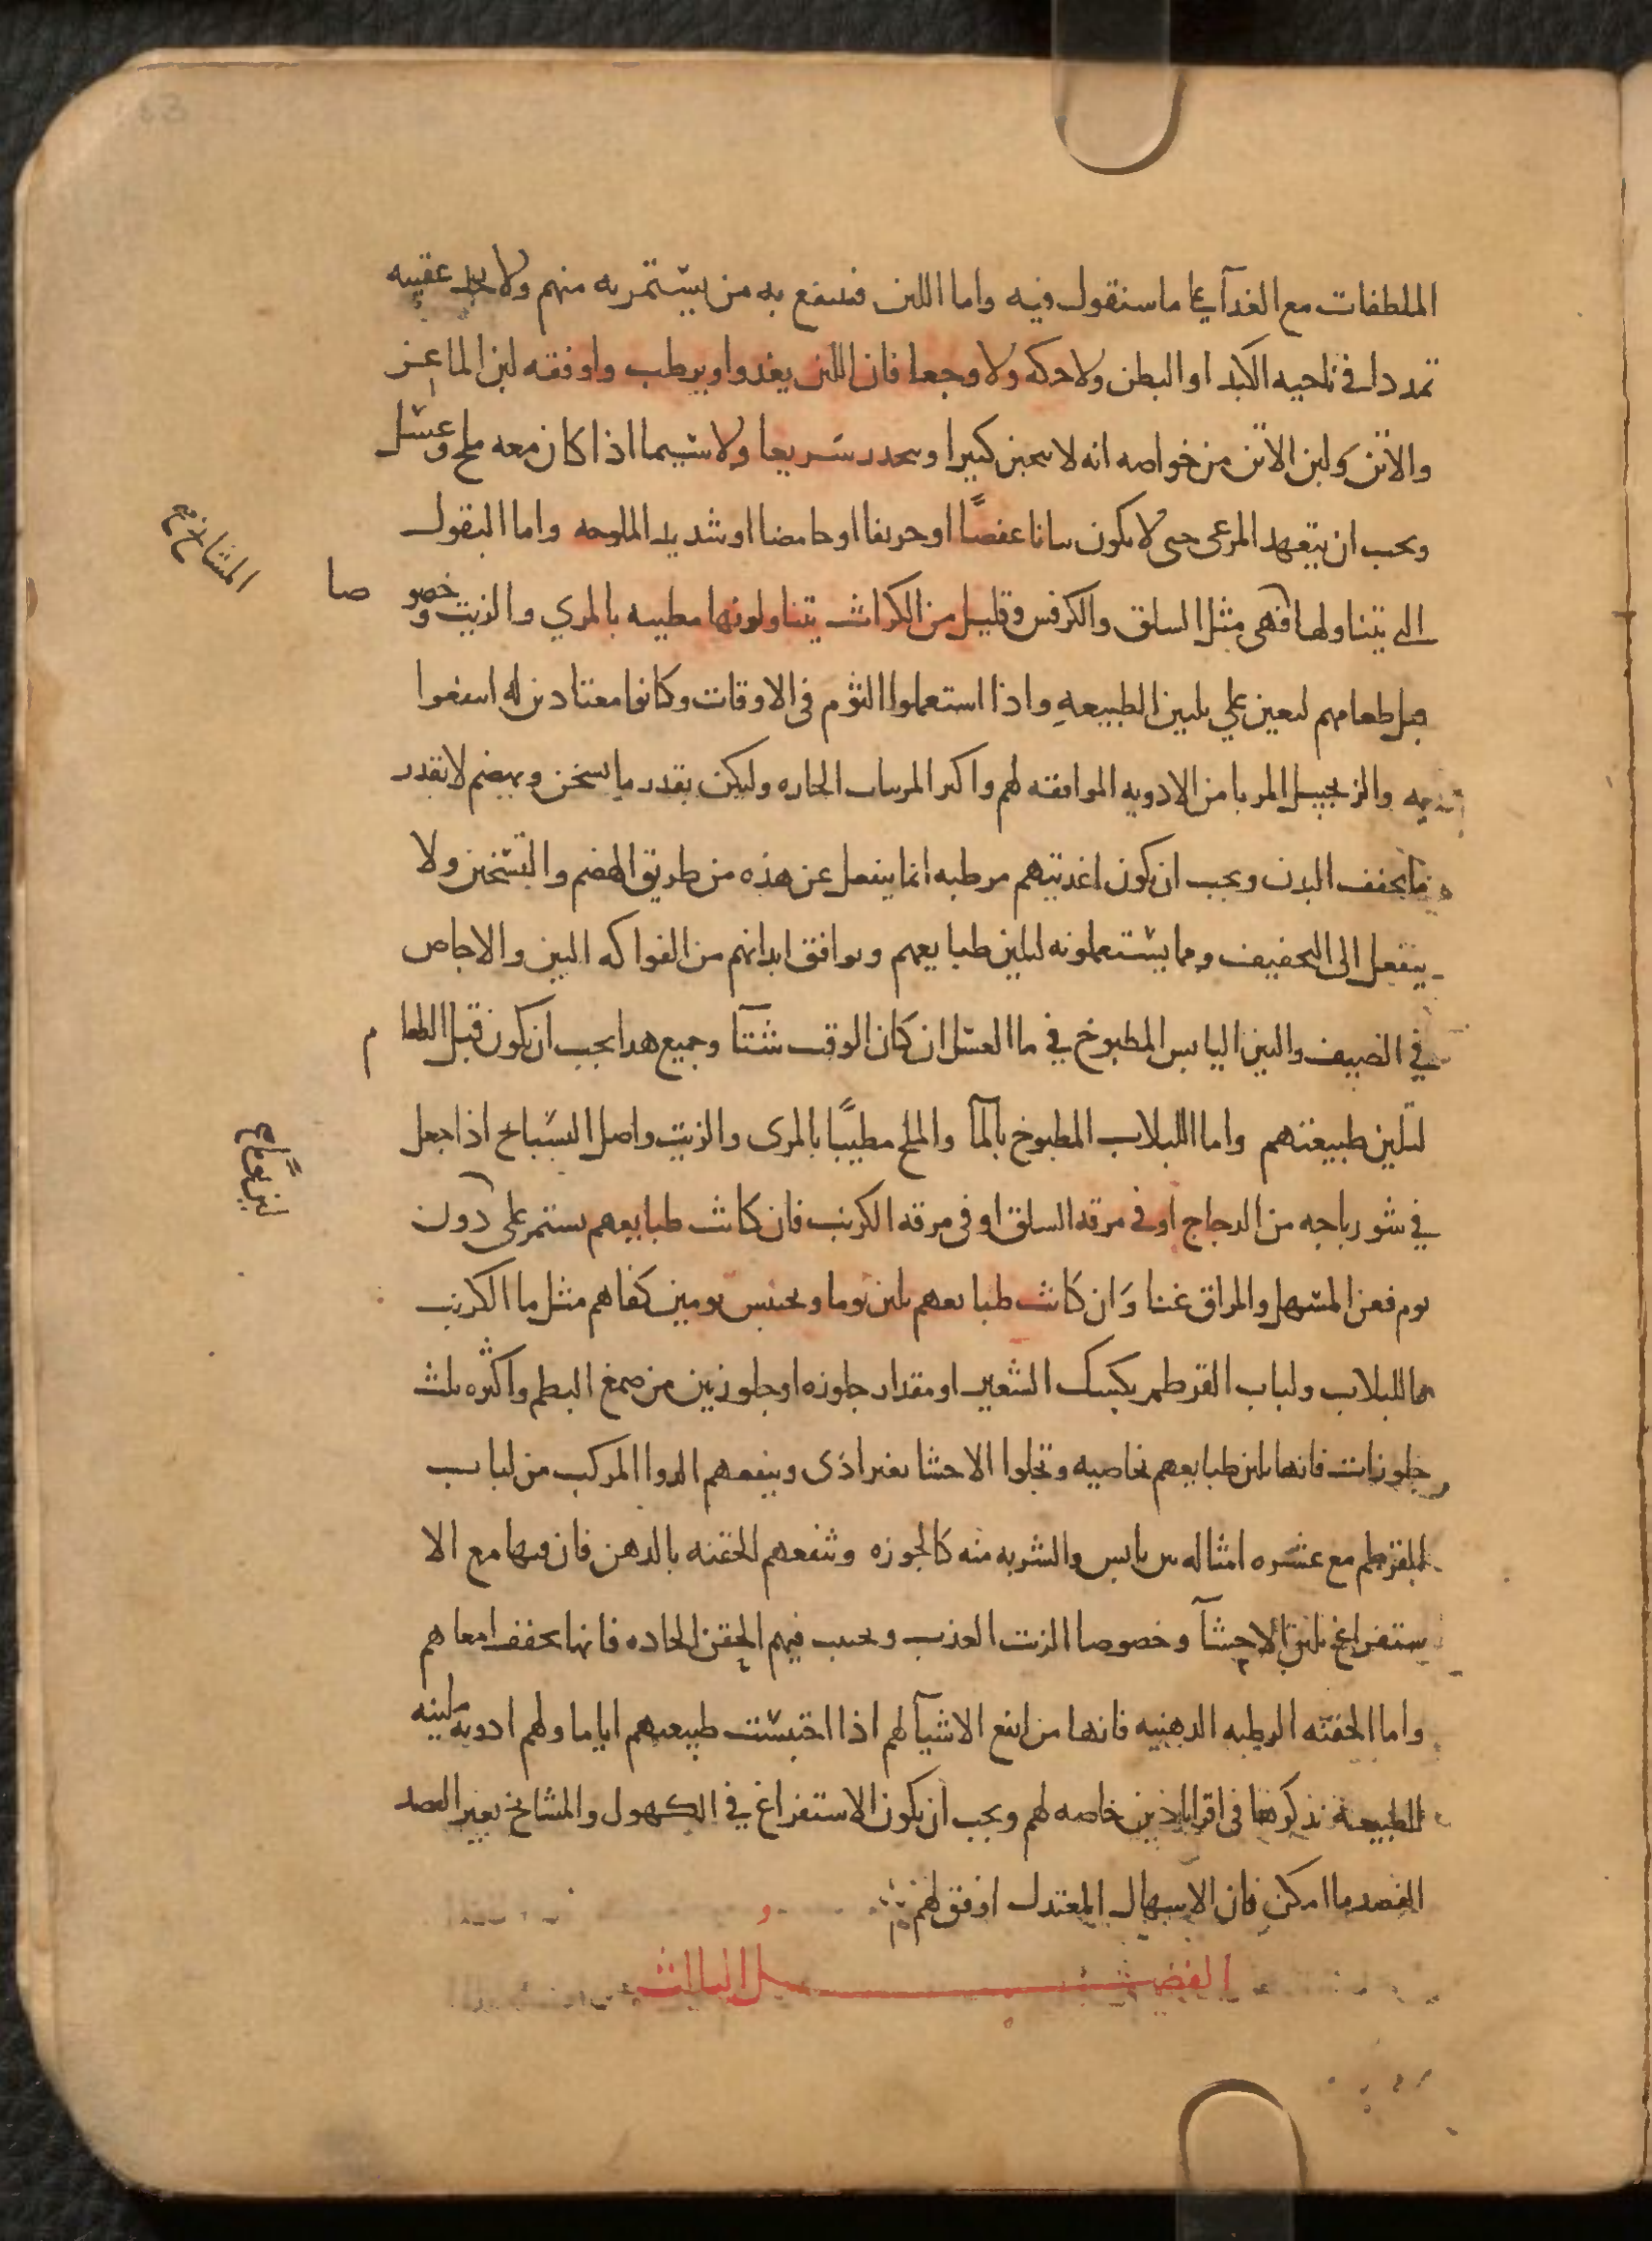 الملطفات مع الغدآ على ما سنقول فيه واما اللبن فينتفع به من يستمريه منهم ولا يجد عقيبه
تمددا في ناحيه الكبد او البطن ولا حكه ولا وجعا فان اللبن يغدوا ويرطب واوفقه لبن الماعز
والاتن ولبن الاتن من خواصه انه لا يتجبن كثيرا وينحدر سريعا ولا سيما اذا كان معه ملح وعسل
ويجب ان يتعهد المرعى حتى لا يكون نباتا عفصًا او حريفا او حامضا او شديد الملوحه واما البقول
التي يتناولها فهي مثل السلق والكرفس وقليل من الكراث يتناولونها مطيبه بالمري والزيت وخصوصا
قبل طعامهم ليعين على تليين الطبيعه واذا استعملوا الثوم في الاوقات وكانوا معتادين له انتفعوا
به والزنجبيل المربا من الادويه الموافقه لهم واكثر المربيات الحاره وليكن بقدر ما يسخن ويهضم لا بقدر
ما يجفف البدن ويجب ان تكون اغديتهم مرطبه انما ينفعل عن هذه من طريق الهضم والتسخين ولا
ينفعل الى التجفيف ومما يستعملونه لتليين طبايعهم ويوافق ابدانهم من الفواكه التين والاجاص
في الصيف والتين اليابس المطبوخ في ما العسل ان كان الوقت شتآ وجميع هدا يجب ان يكون قبل الطعام
لتليين طبيعتهم واما اللبلاب المطبوخ بالمآ والملح مطيبًا بالمرى والزيت واصل البسباخ اذا جعل
في شورباجه من الدجاج او في مرقه السلق او في مرقه الكرنب فان كانت طبايعهم تستمر على دون
يوم فعن المسهل والمزلق غنا وان كانت طبايعهم تلين يوما ويحتبس يومين كفاهم مثل ما الكرنب
ما اللبلاب ولباب القرطم بكشك الشعير او مقدار جلوزه او جلوزتين من صمغ البطم واكثره ثلث
جلوزات فانها تلين طبايعهم بخاصيه وتجلوا الاحشا بغير اذى وينفعهم الدوا المركب من لباب
القرطم مع عشره امثاله تين يابس والشربه منه كالجوزه وتنفعهم الحقنه بالدهن فان فيها مع الا
ستفراغ تليين الاحشآ وخصوصا الزيت العذب ويجتنب فيهم الحقن الحاده فانها تجفف امعاهم
واما الحقنه الرطبه الدهنيه فانها من انفع الاشيآ لهم اذا احتبست طبيعتهم اياما ولهم ادويه ملينه
للطبيعة نذكرها في اقراباذين خاصه لهم ويجب ان يكون الاستفراغ في الكهول والمشايخ بغير الفصد
الفصد ما امكن فان الاسهال المعتدل اوفق لهم
الفصل الثالث
المشايخ